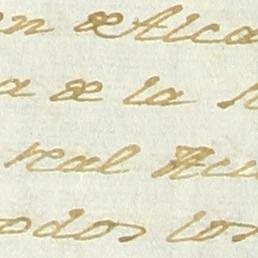 en de Alca
a de la
real Aca
odos los